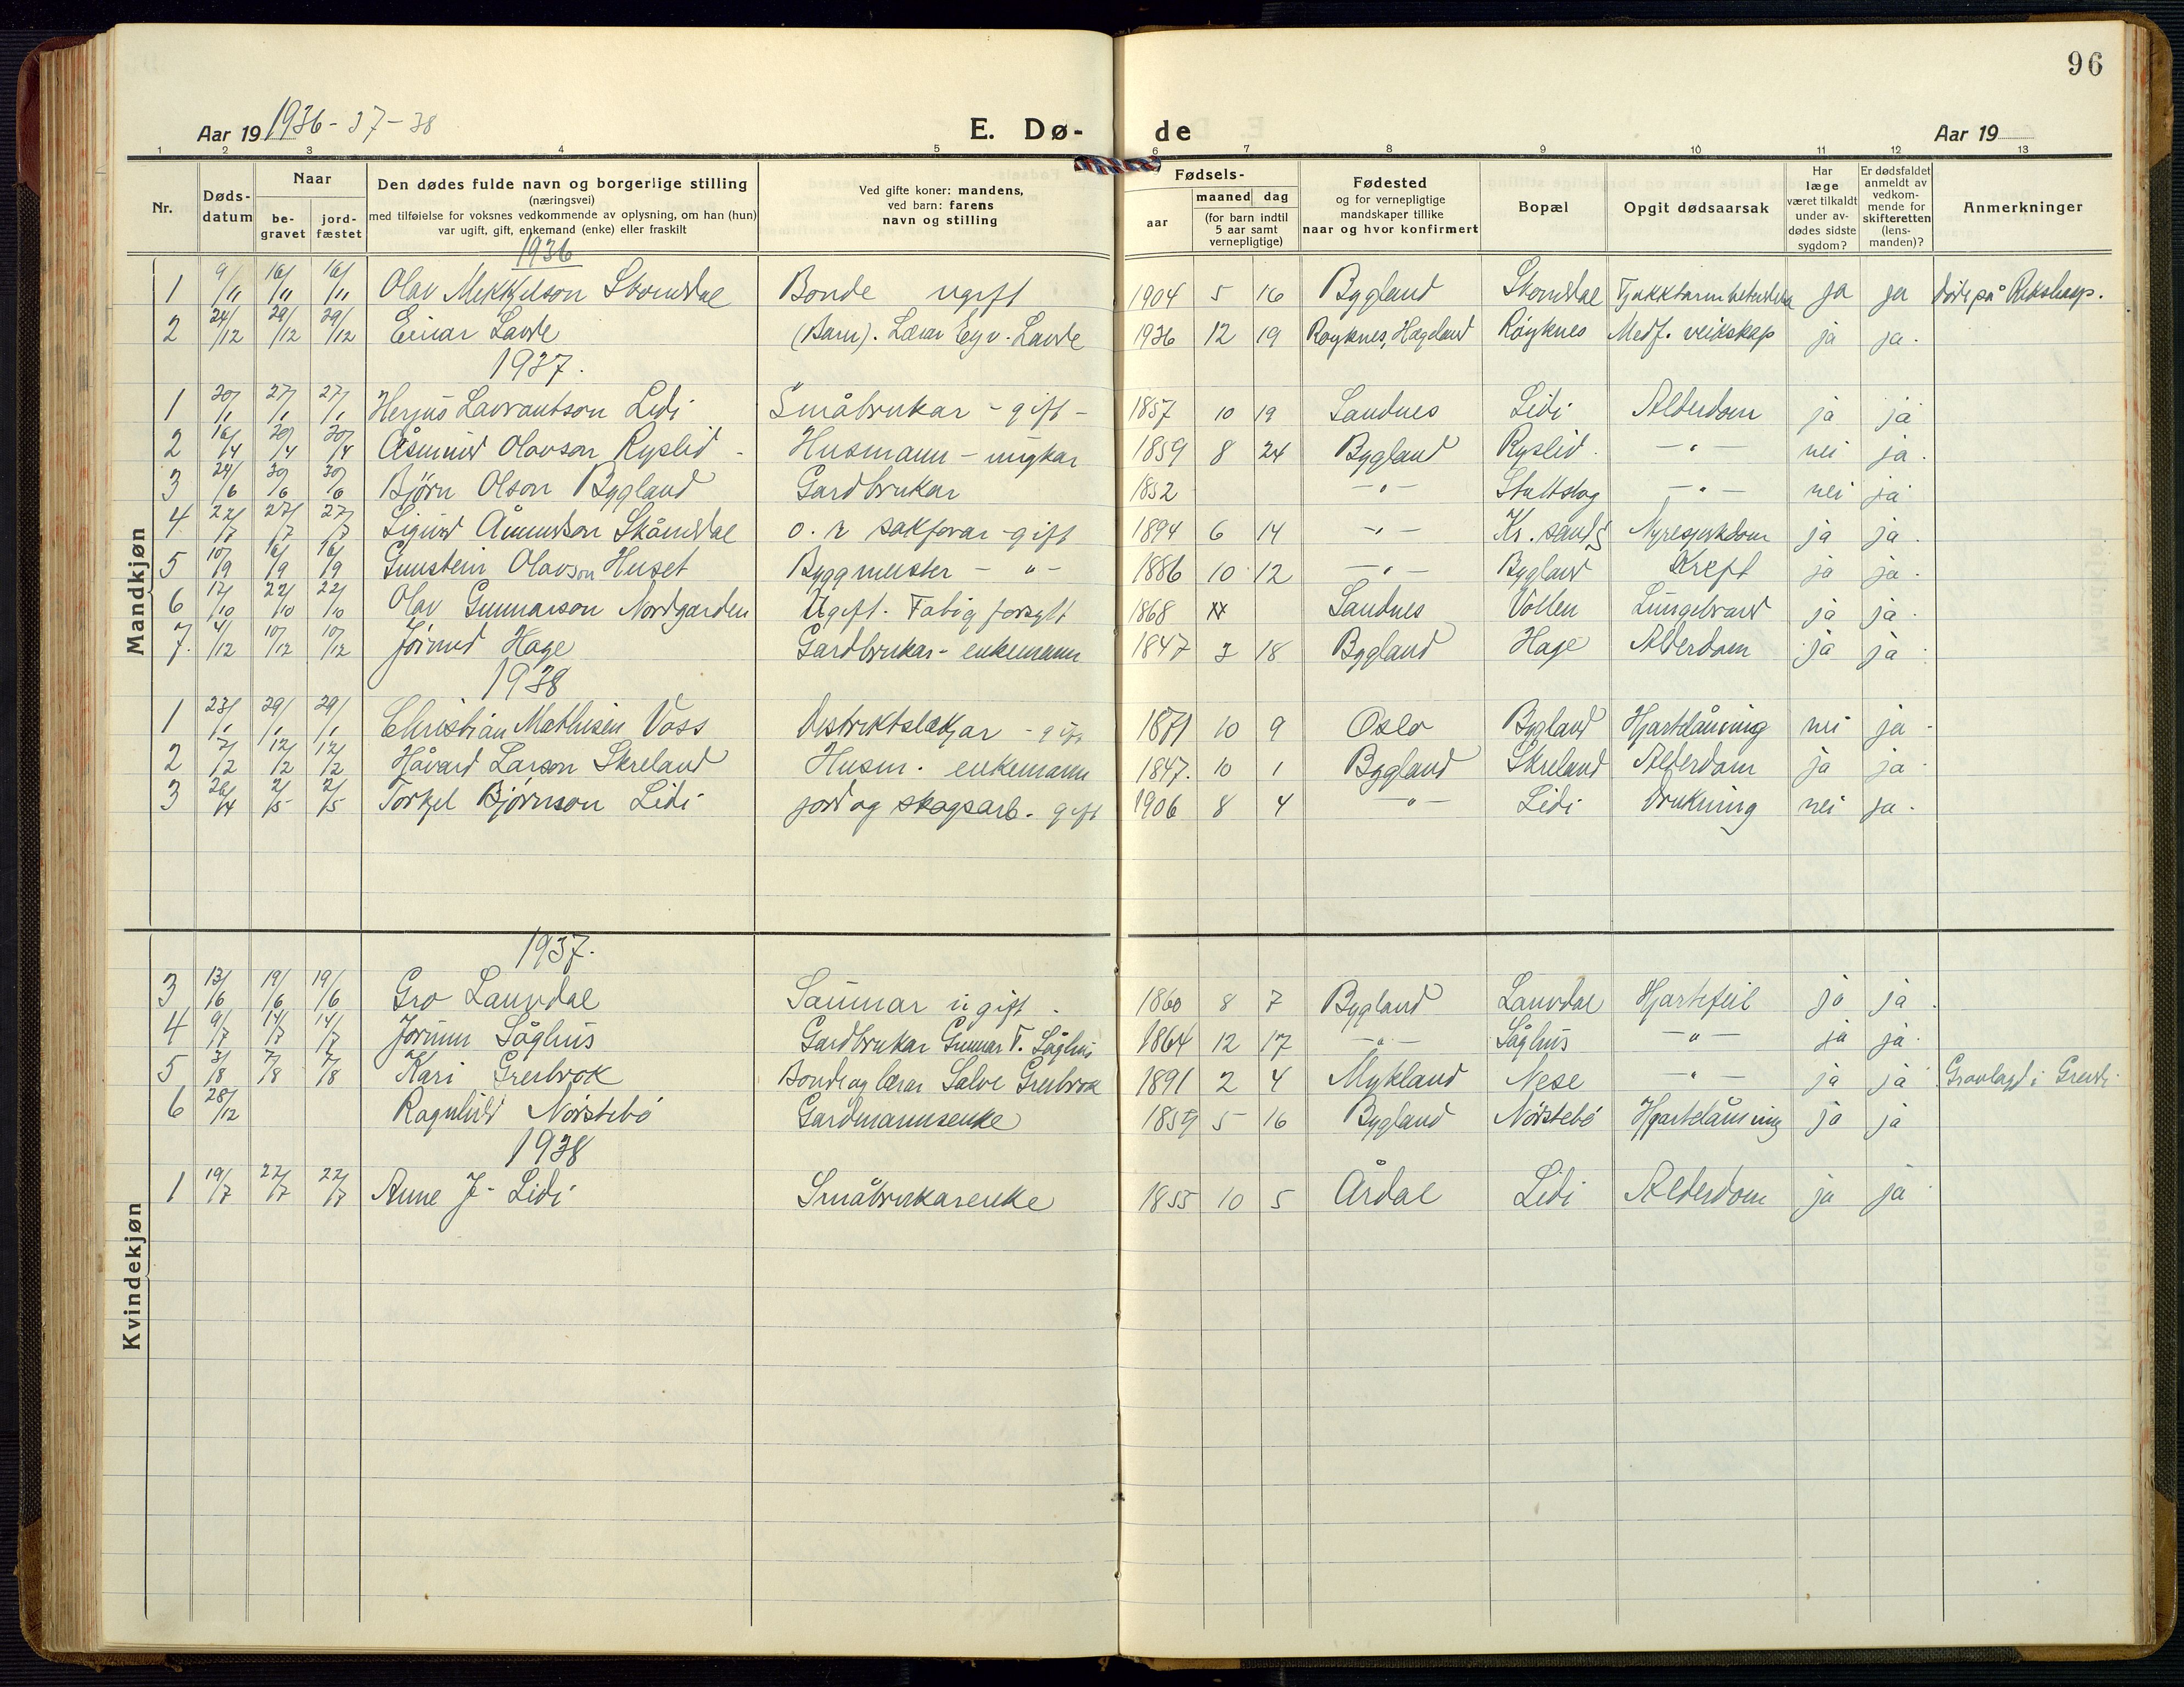 96
Aar 19 1936 - 37 - 38
E. Dø-
de
Aar 19
1 2 3 4 5 6 7 8 9 10 11 12 13
Nr.
Døds-datum
Naar
be-gravet
jord-fæstet
Den dødes fulde navn og borgerlige stilling
(næringsvei)
med tilføielse for voksnes vedkommende av oplysning, om han (hun)
var ugift, gift, enkemand (enke) eller fraskilt
Ved gifte koner: mandens,
ved barn: farens
navn og stilling
Fødsels-
aar
maaned dag
(for barn indtil 5 aar samt vernepligtige)
Fødested
og for vernepligtige
mandskaper tillike
naar og hvor konfirmert
Bopæl
Opgit dødsaarsak
Har læge været tilkaldt under av-dødes sidste sygdom?
Er dødsfaldet anmeldt av vedkom-mende for skifteretten (lens-manden)?
Anmerkninger
Mandkjøn
1936
1 9/11 16/11 16/11 Olav Mekkjelson Skomdal Bonde ugift 1904 5 16 Bygland Skomdal ja ja døde på
2 24/12 29/12 29/12 Einar Lauve (Barn). Lærar Eyv. Lauve 1936 12 19 Røyknes, Hægeland Røyknes Medf. veikskap ja ja.
1937.
1 20/1 27/1 27/1 Herjus Lavrantson Lidi Småbrukar - gift - 1857 10 19 Sandnes Lidi Alderdom ja ja
2 16/4 20/4 20/4 Åsmund Olavson Ryslid - Husmann - ungkar 1859 8 24 Bygland Ryslid. - " - nei ja.
3 24/6 30/6 30/6 Bjørn Olson Bygland Gardbrukar 1852 - " - - " - nei ja
4 22/7 27/7 27/7 Sigurd Åmundson Skåmdal o. r sakførar - gift 1894 6 14 - " - Kr. sand S Nyresjukdom ja ja.
5 10/9 16/9 16/9 Gunstein Olavson Huset Byggmeister - " - 1886 10 12 - " - Bygland Kreft ja ja.
6 17/10 22/10 22/10 Olav Gunnarson Nordgarden Ugift. Fatig forsylt 1868 Sandnes Vollen ja ja
7. 4/12 10/12 10/12 Jørund Hage Gardbrukar - enkemann 1847 3 18 Bygland Hage Alderdom ja ja
1938
1 23/1 29/1 29/1 Christian Mathisen Voss Distriktslækjar - gift 1871 10 9 Oslo Bygland Hjartelåming nei ja -
2 7/2 12/2 12/2 Håvard Larson Skreland Husm. enkemann 1847. 10 1 Bygland Skreland Alderdom ja ja
3 26/4 2/5 2/5 Torkjel Bjørnson Lidi jord og skogsarb. gift 1906 8 4 - " - Lidi Drukning nei ja.
Kvindekjøn
1937.
3 13/6 19/6 19/6 Gro Lauvdal Saumar ugift. 1860 8 7 Bygland Lauvdal Hjartefeil ja ja.
4 9/7 14/7 14/7 Jorunn Såghus Gardbrukar Gunnar T. Såghus 1864 12 17 - " - Såghus " ja ja.
5 3/8 7/8 7/8 Kari Greibrok Bonde og lærar Salve Greibrok 1891 2 4 Mykland Nese - " - ja ja Gravlagd i
6 28/12 Ragnhild Nørstebø Gardmannsenke 1859 5 16 Bygland Nørstebø Hjartelåming ja ja
1938
1 19/7 22/7 22/7 Anne J. Lidi Småbrukarenke 1855 10 5 Årdal Lidi Alderdom ja ja